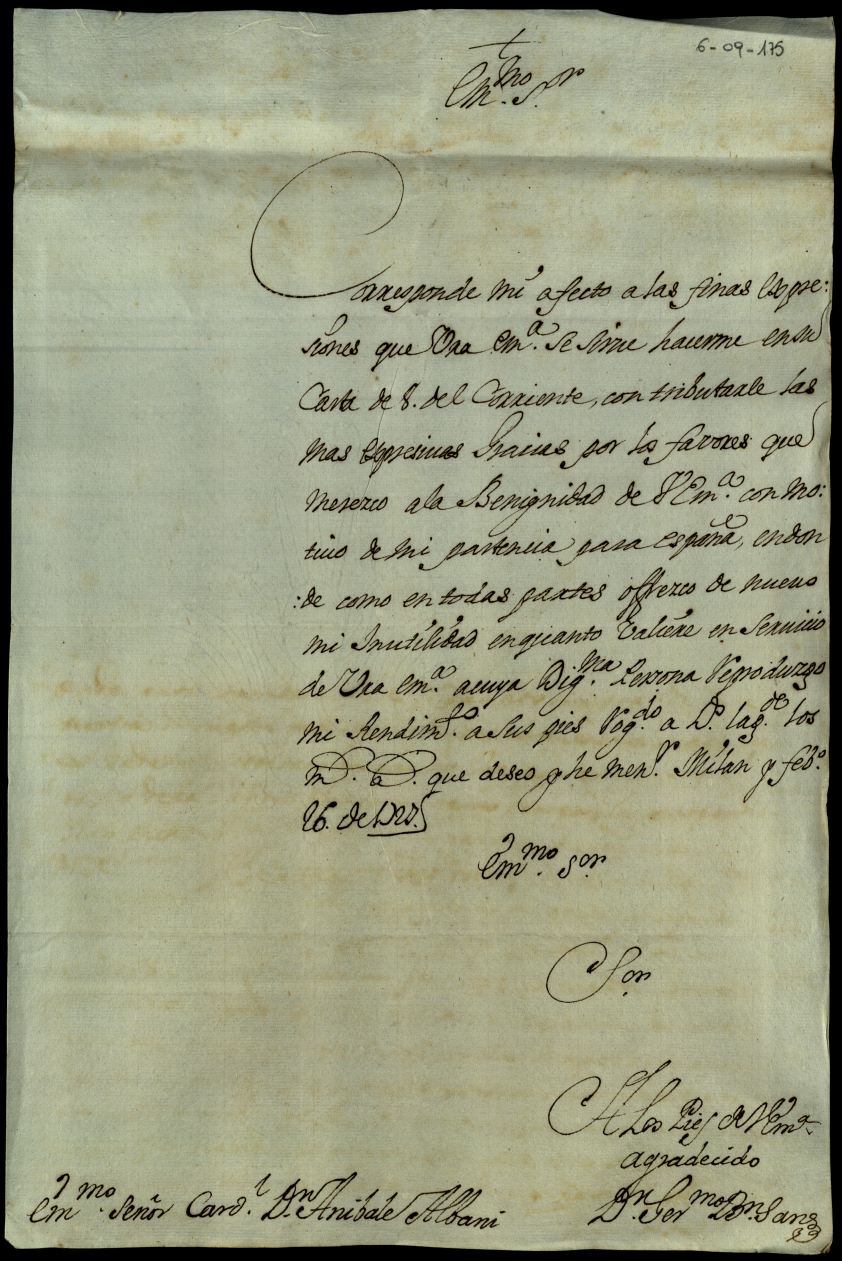 6-09-175
†
Em.mo S.or
Corresponde mi afecto a las finas Expre:
siones que Vra Em.a se sirve hacerme en su
Carta de 8. del Corriente, con tributarle las
mas expresiuas Gracias por los favores que
merezco a la Benignidad de V Em.a con mo:
tiuo de mi partencia para españa, en don
:de como en todas partes offrezco de nueuo
mi Inutilidad en quanto Valiere en Seruicio
de Vra Em.a a cuya Dig.ma Perzona Reproduzgo
mi Rendim.to a sus pies Rog.do a D.s la g.de los
m.s a.s que deseo y he men.r Milan y feb.o
26. de
Em.mo S.or
S.or
A Los Pies de V Em.a
agradecido
Em.mo Señor Card.l D.n Anibale Albani
D.n Ger.mo Sanz